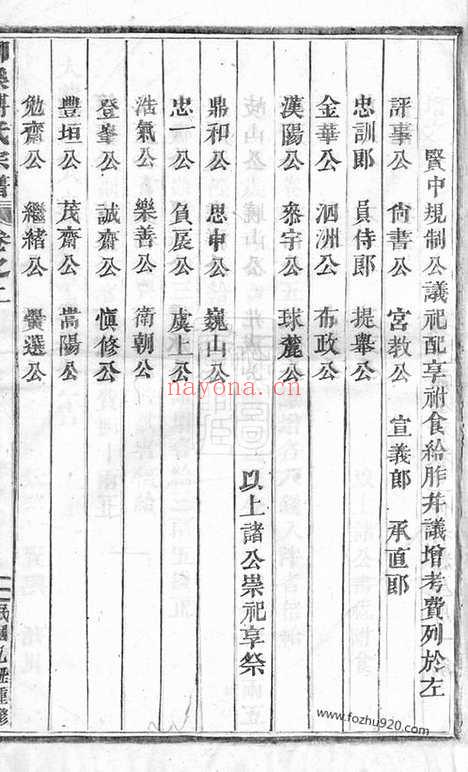 賢中規制公議祀配享祔食給胙并議增考費列於左
評事公 尚書公 宮教公 宣義郎 承直郎
忠訓郎 員侍郎 提舉公
金華公 泗洲公 布政公
漢陽公 泰宇公 球麓公
以上諸公崇祀享祭
鼎和公 思中公 巍山公
忠一公 負扆公 虞上公
浩氣公 樂善公 衛朝公
登峯公 誠齋公 愼修公
豐垣公 茂齋公 嵩陽公
勉齋公 繼緒公 黌選公
氏宗譜 卷之二
民國九年重修
nayona.cn
www.fozhu920.com